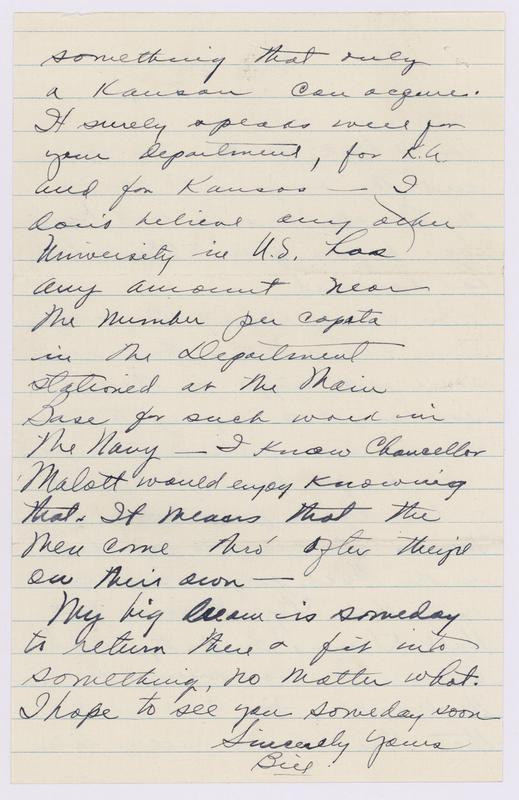 something that only
a Kansan can acquire.
It surely speaks well for
your Department, for K.U.
and for Kansas — I
don't believe any other
University in U.S. has
any amount near
the number per capita
in the Department
stationed at the Main
Base for such work in
the Navy — I know Chancellor
Malott would enjoy knowing
that. It means that the
men come thro' after
on their own —
My big dream is someday
to return there & fit into
something, no matter what.
I hope to see you someday soon
Sincerely yours
Bill.